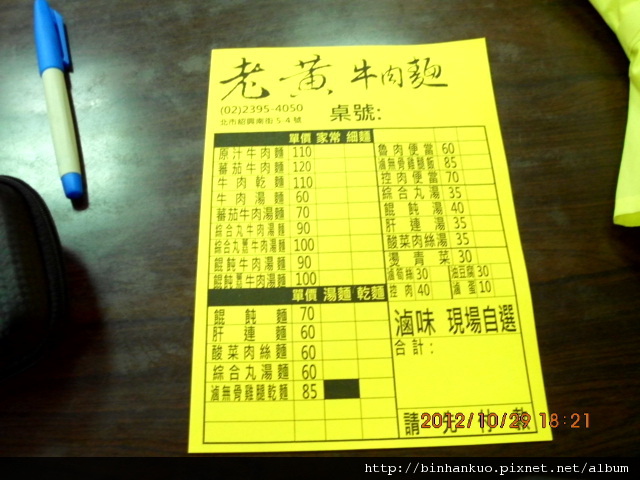 老黃牛肉麵
(02)2395-4050
北市紹興南街5-4號
桌號:
單價 家常 細麵
原汁牛肉麵 110
蕃茄牛肉麵 120
牛肉乾麵 110
牛肉湯麵 60
蕃茄牛肉湯麵 70
綜合丸牛肉湯麵 90
綜合丸蕃牛肉湯麵 100
餛飩牛肉湯麵 90
餛飩蕃牛肉湯麵 100
單價 湯麵 乾麵
餛飩麵 70
肝連麵 60
酸菜肉絲麵 60
綜合丸湯麵 60
滷無骨雞腿乾麵 85
魯肉便當 60
滷無骨雞腿飯 85
控肉便當 70
綜合丸湯 35
餛飩湯 40
肝連湯 35
酸菜肉絲湯 35
燙青菜 30
滷筍絲 30 油豆腐 30
控肉 40 滷蛋 10
滷味 現場自選
合計:
請先付款
2012/10/29 18:21
http://binhankuo.pixnet.net/album